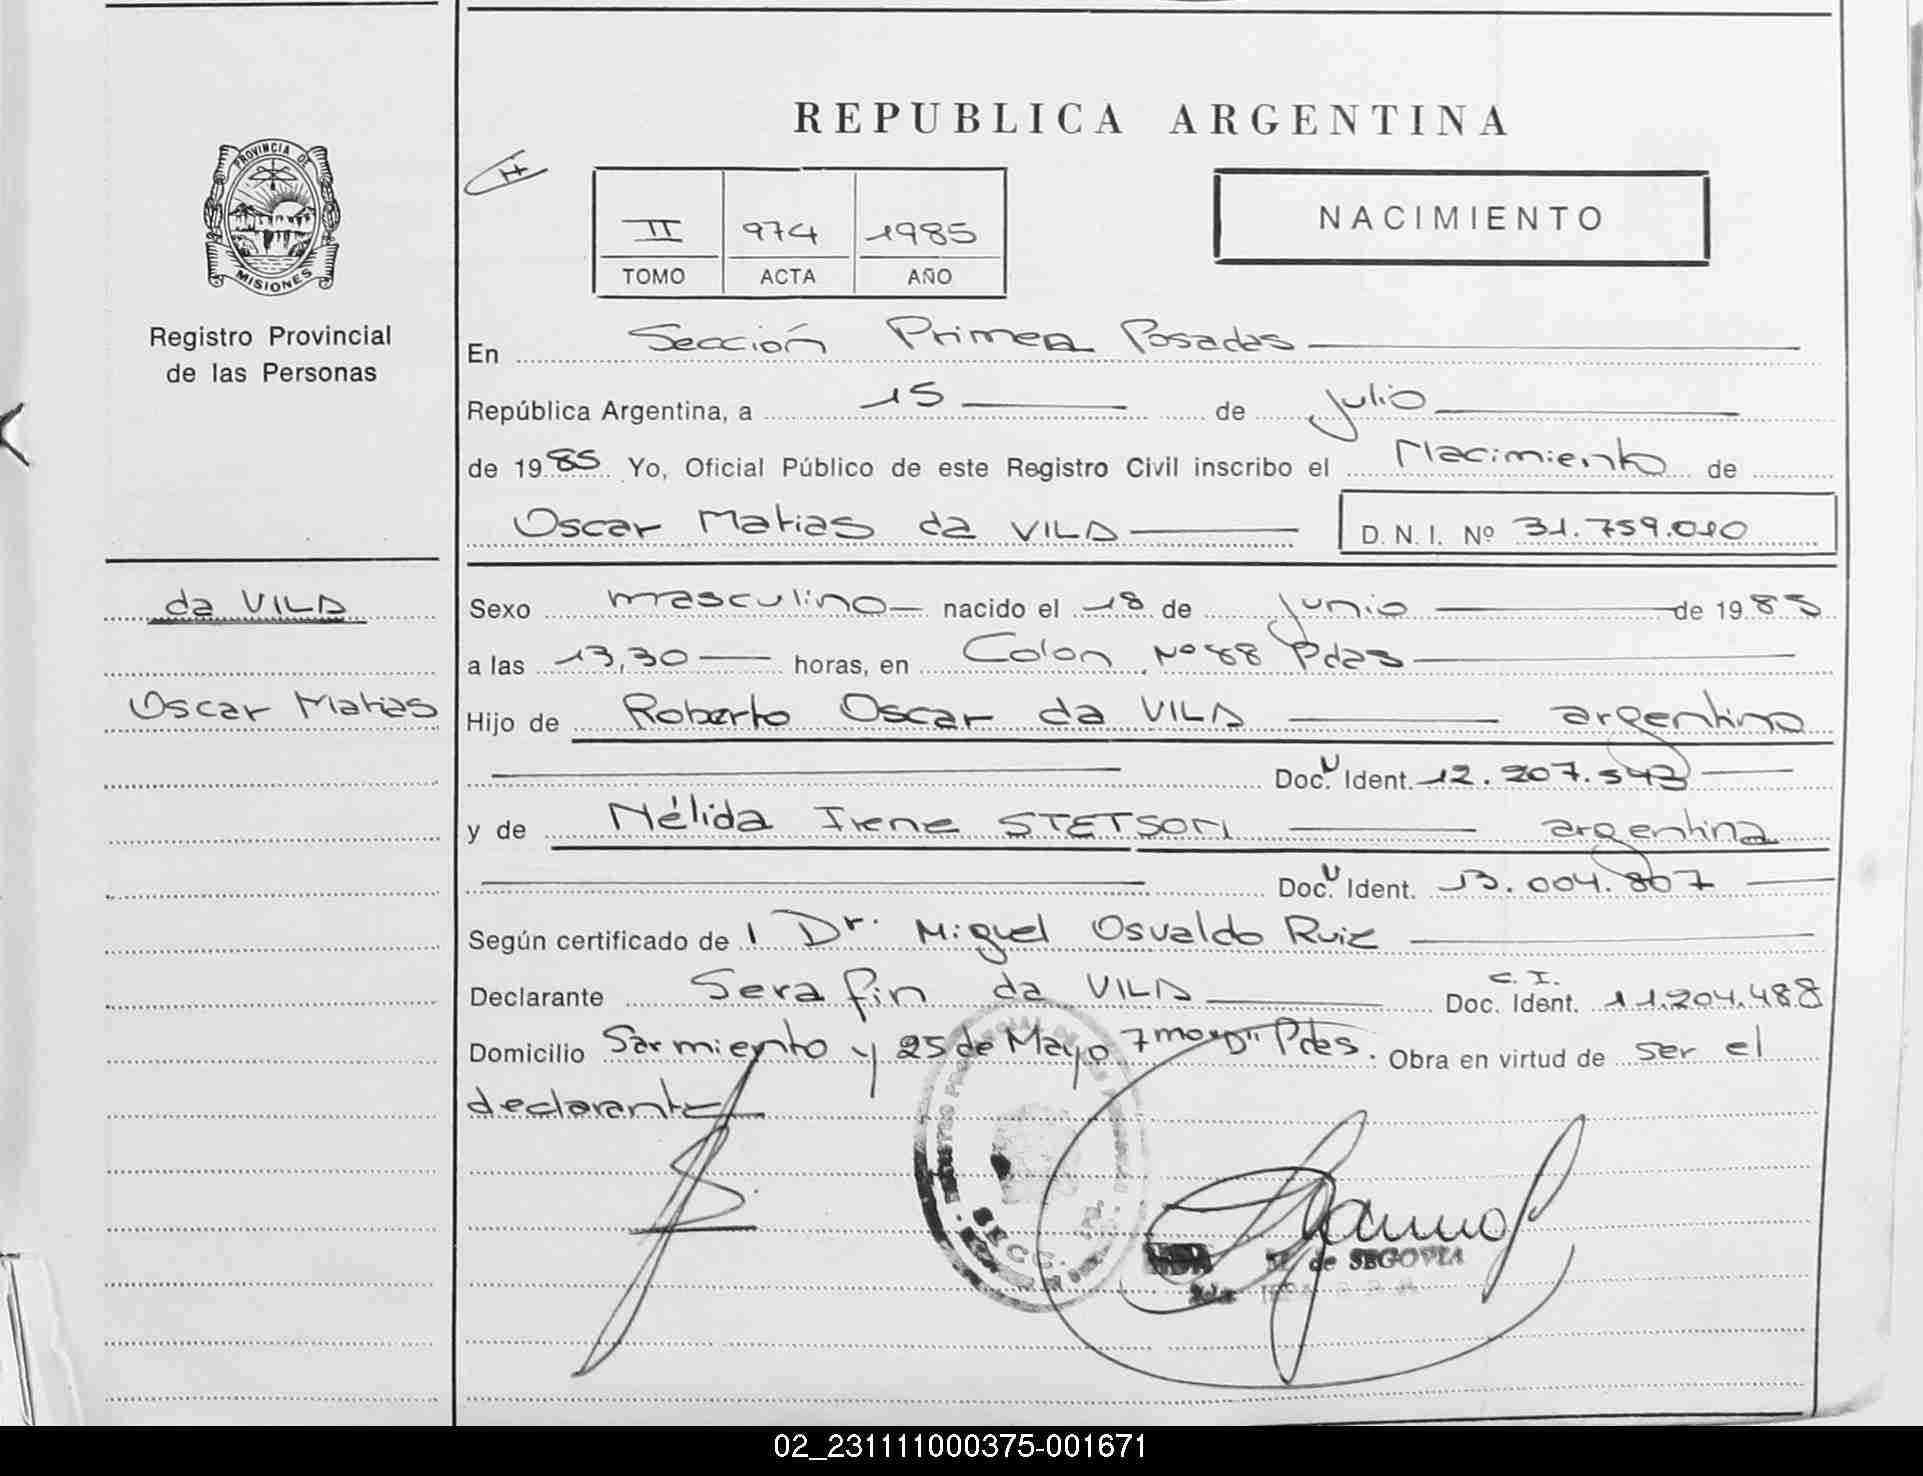 REPUBLICA ARGENTINA
PROVINCIA DE
MISIONES
Registro Provincial
de las Personas
II 974 1985
TOMO ACTA AÑO
NACIMIENTO
En Sección Primera Posadas
República Argentina, a 15 de Julio
de 1985 Yo, Oficial Público de este Registro Civil inscribo el Nacimiento de
Oscar Matias da VILA D. N. I. Nº 31.759.010
da VILA
Oscar Matias
Sexo masculino nacido el 18 de Junio de 1985
a las 13,30 horas, en Colon Nº 88 Pdas
Hijo de Roberto Oscar da VILA argentino
Doc. U Ident. 12.207.543
y de Nélida Irene STETSON argentina
Doc. U Ident. 13.004.807
Según certificado de l Dr. Miguel Osvaldo Ruiz
Declarante Serafin da VILA C. I. Doc. Ident. 11.204.488
Domicilio Sarmiento y 25 de Mayo 7mo "D" Pdas. Obra en virtud de ser el
declarante
SECC.
de SEGOVIA
02_231111000375-001671